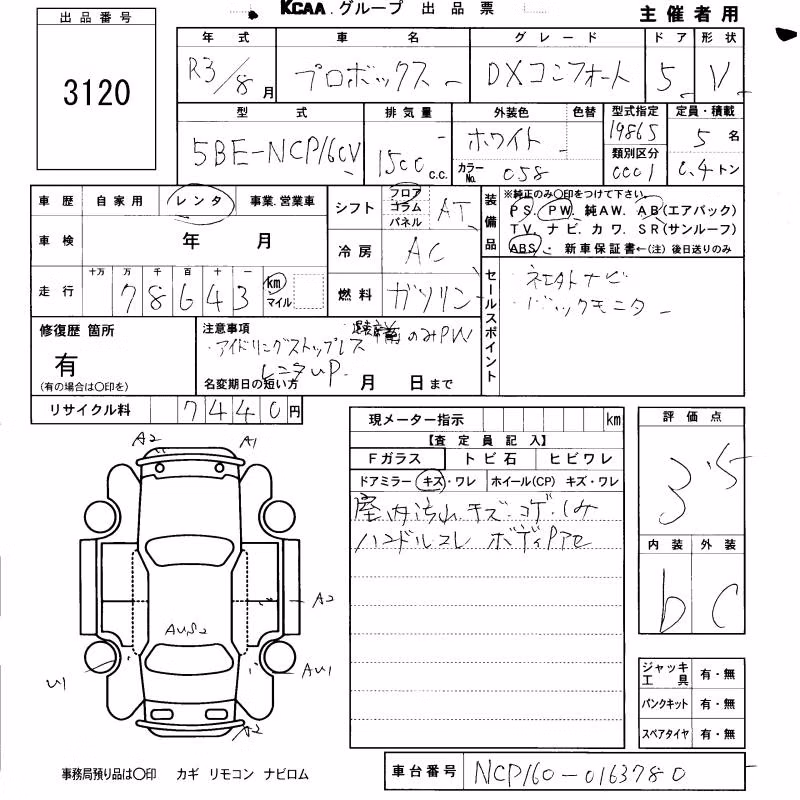 出品番号
3120
KCAA.グループ 出品票
主催者用
年式 車名 グレード ドア 形状
R3/8月 プロボックス DXコンフォート 5 V
型式 排気量 外装色 色替 型式指定 定員・積載
5BE-NCP160V 1500 c.c. ホワイト 19865 5名
カラーNo. 058 類別区分 0001 0.4トン
車歴 自家用 レンタ 事業.営業車
シフト フロア コラム パネル AT
装備品 ※純正のみ〇印をつけて下さい。
PS. PW. 純AW. AB(エアバック)
TV. ナビ. カワ. SR(サンルーフ)
ABS ・ 新車保証書←(注) 後日送りのみ
車検 年 月
冷房 AC
走行 十万 万 千 百 十 一
78643 km マイル
燃料 ガソリン
セールスポイント
・ネセタトナビ
・バックモニター
修復歴 箇所
有
(有の場合は〇印を)
注意事項
のみPW
・アイドリングストップレス
レンタUP.
名変期日の短い方 月 日まで
リサイクル料 7440円
現メーター指示 km
【査定員記入】
Fガラス トビ石 ヒビワレ
ドアミラー キズ・ワレ ホイール(CP) キズ・ワレ
室内汚れ.キズ.コゲ.シミ
ハンドルコレ ボディPアセ
評価点
3.5
内装 外装
b C
A2 A1
A2
AU52
U1 AU1
A2
ジャッキ工具 有・無
パンクキット 有・無
スペアタイヤ 有・無
事務局預り品は〇印 カギ リモコン ナビロム
車台番号 NCP160-0163780